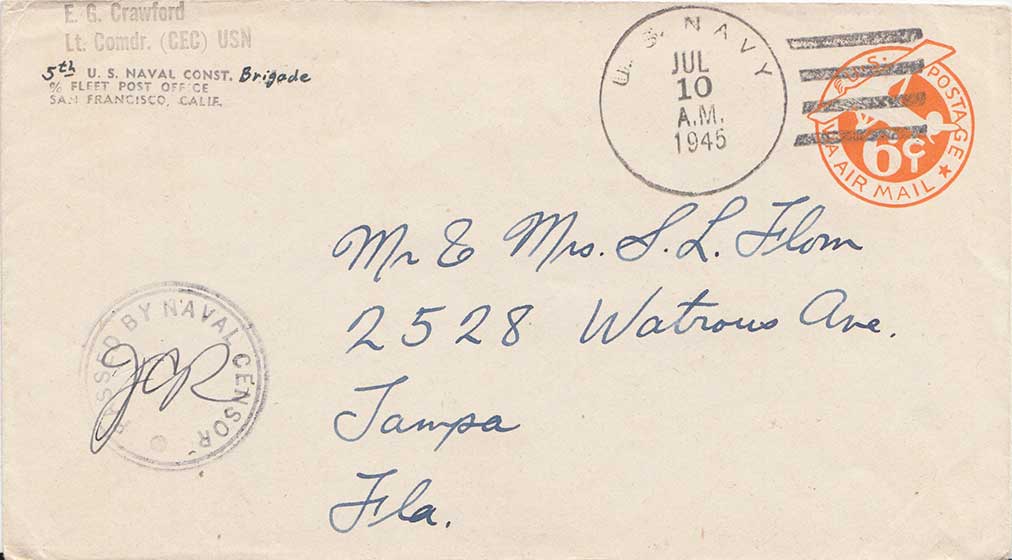 E. G. Crawford
Lt. Comdr. (CEC) USN
5th U. S. NAVAL CONST. Brigade
℅ FLEET POST OFFICE
SAN FRANCISCO, CALIF.
U. S. NAVY
JUL
10
A.M.
1945
U.S. POSTAGE
6¢
VIA AIR MAIL
Mr & Mrs. S. L. Flom
2528 Watrous Ave.
Tampa
Fla.
PASSED BY NAVAL CENSOR
JCR